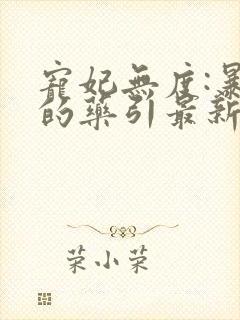 寵妃無度:暴
的藥引最新
荣小荣